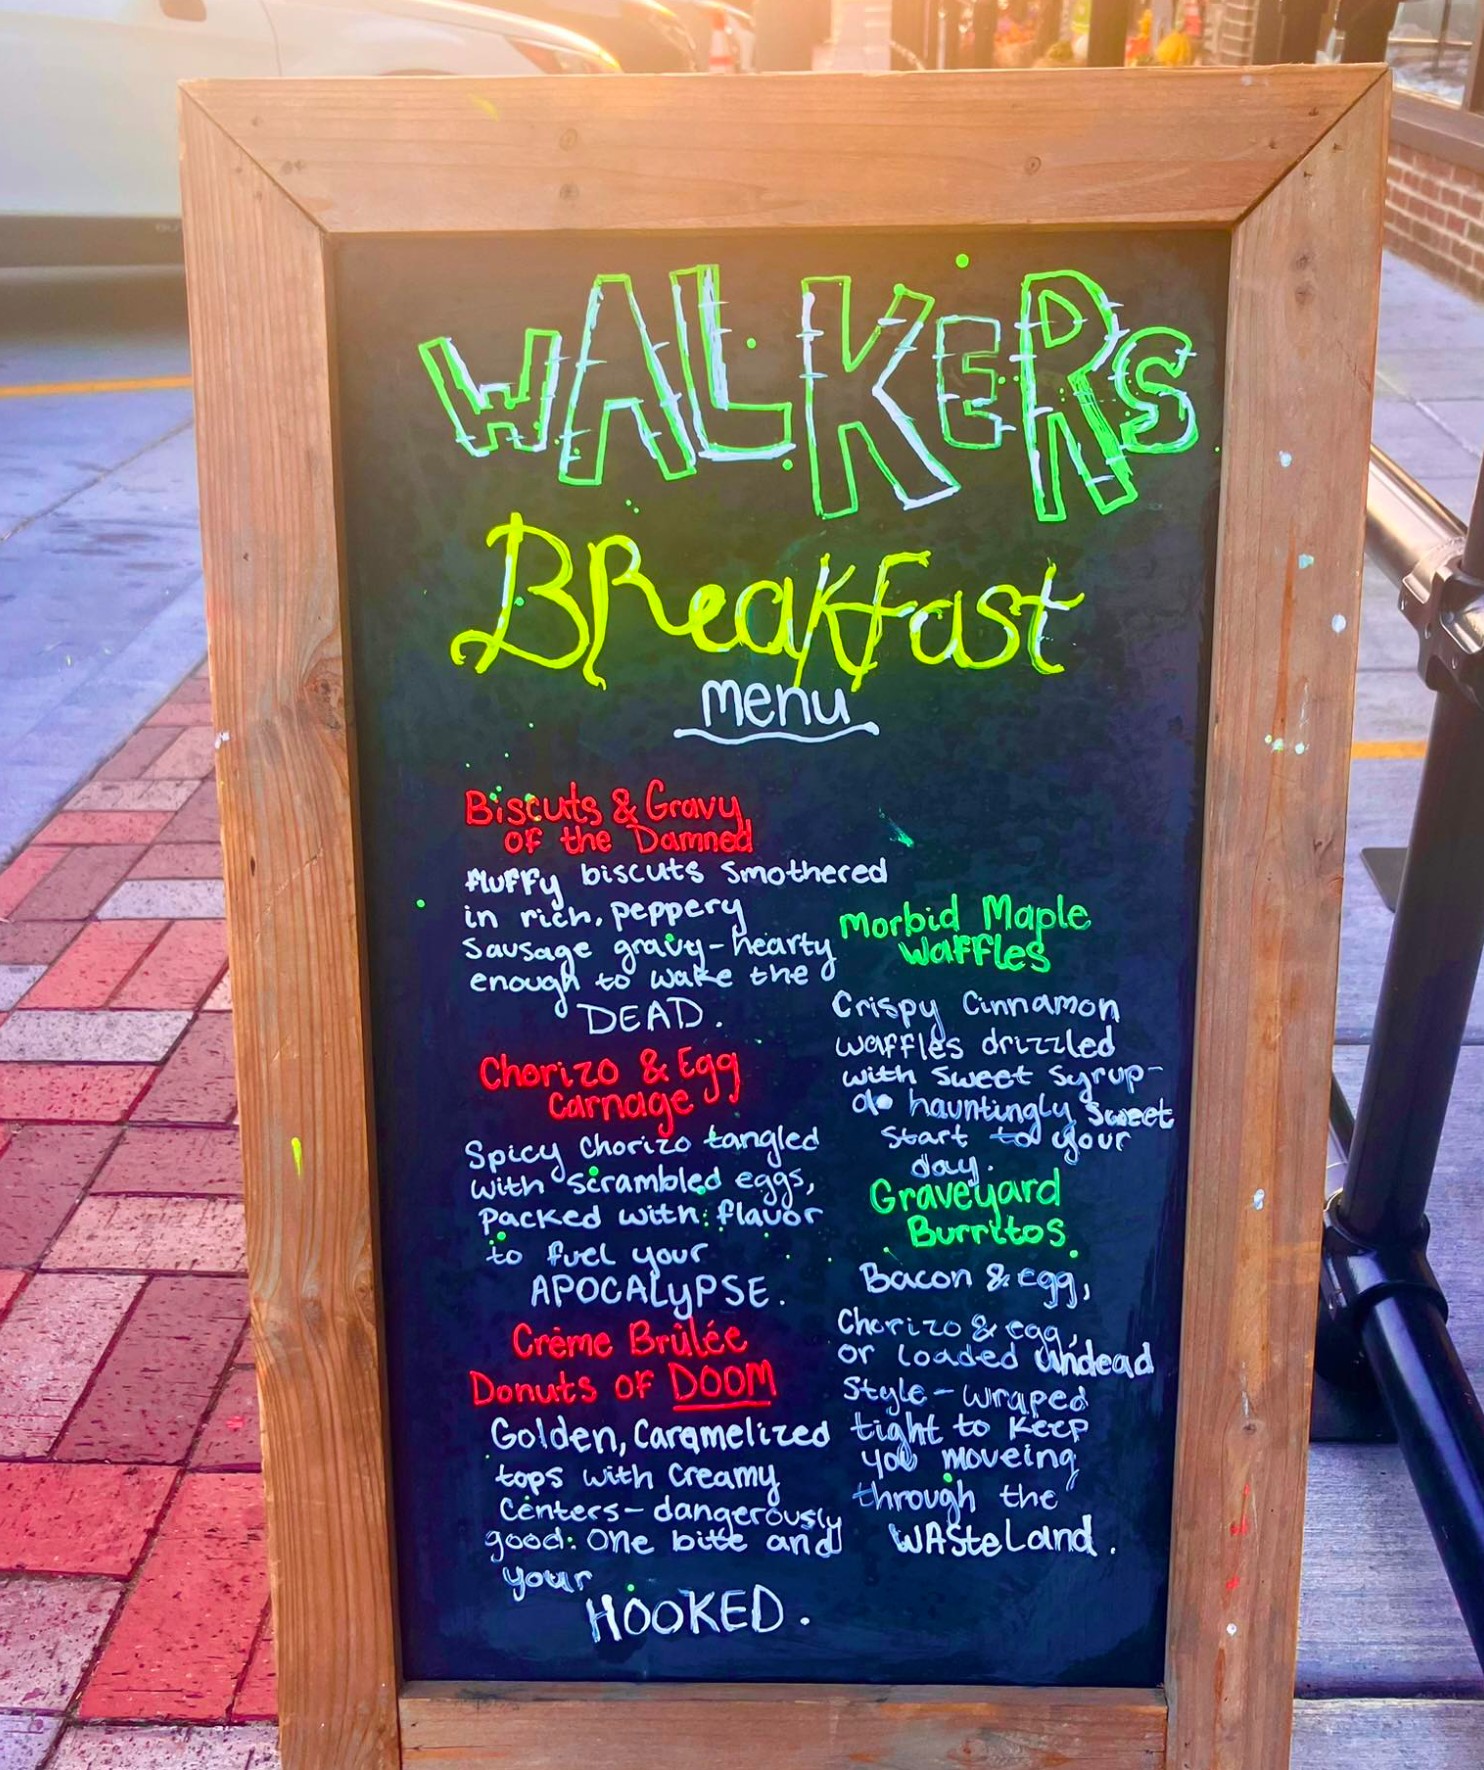 WALKERS
BReakfast
menu
Biscuts & Gravy
of the Damned
fluffy biscuts smothered
in rich, peppery
Sausage gravy-hearty
enough to wake the
DEAD.
Chorizo & Egg
Carnage
Spicy Chorizo tangled
with scrambled eggs,
Packed with flavor
to fuel your
APOCALYPSE.
Crème Brûlée
Donuts of DOOM
Golden, Caramelized
tops with Creamy
Centers- dangerously
good: One bite and
your
HOOKED.
Morbid Maple
Waffles
Crispy Cinnamon
waffles drizzled
with sweet syrup-
a hauntingly sweet
start to your
day.
Graveyard
Burritos
Bacon & egg,
Chorizo & egg,
or loaded undead
Style- wraped
tight to keep
you moveing
through the
WAsteLand.